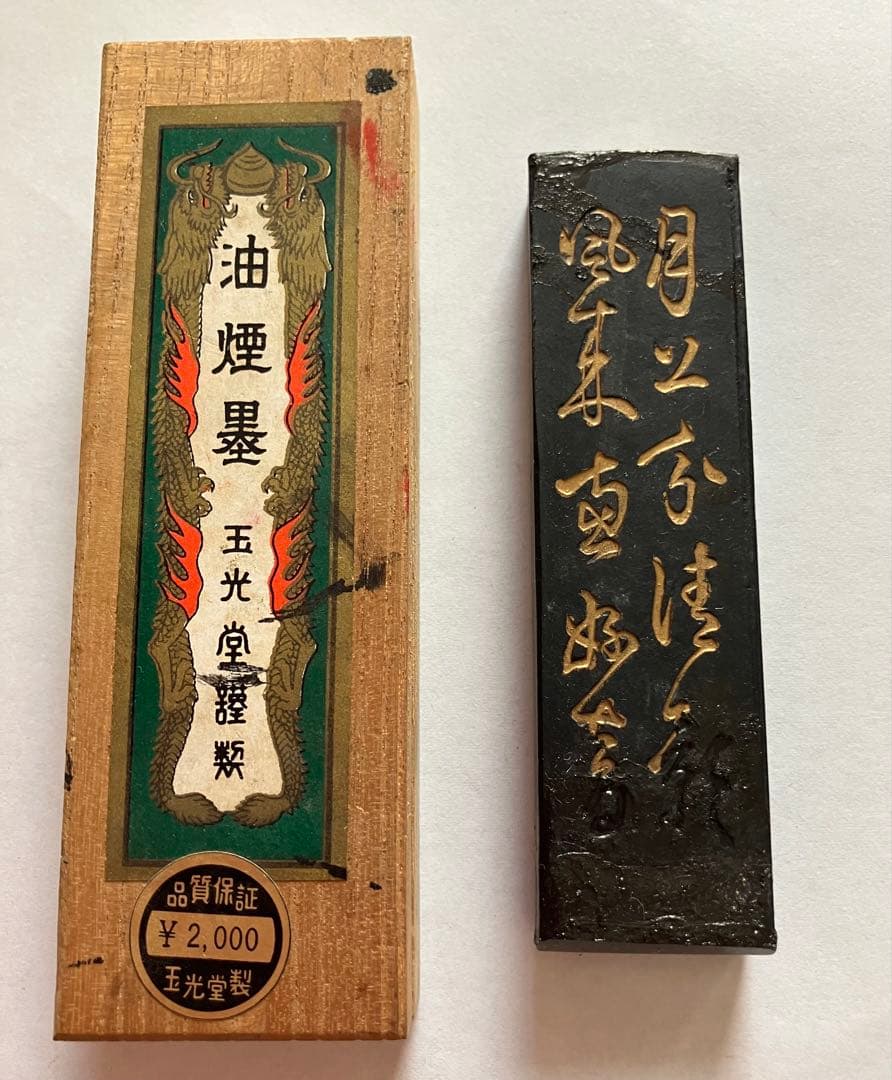 油煙墨
玉光堂謹製
品質保証
¥2,000
玉光堂製
月上分清
風来恵好音